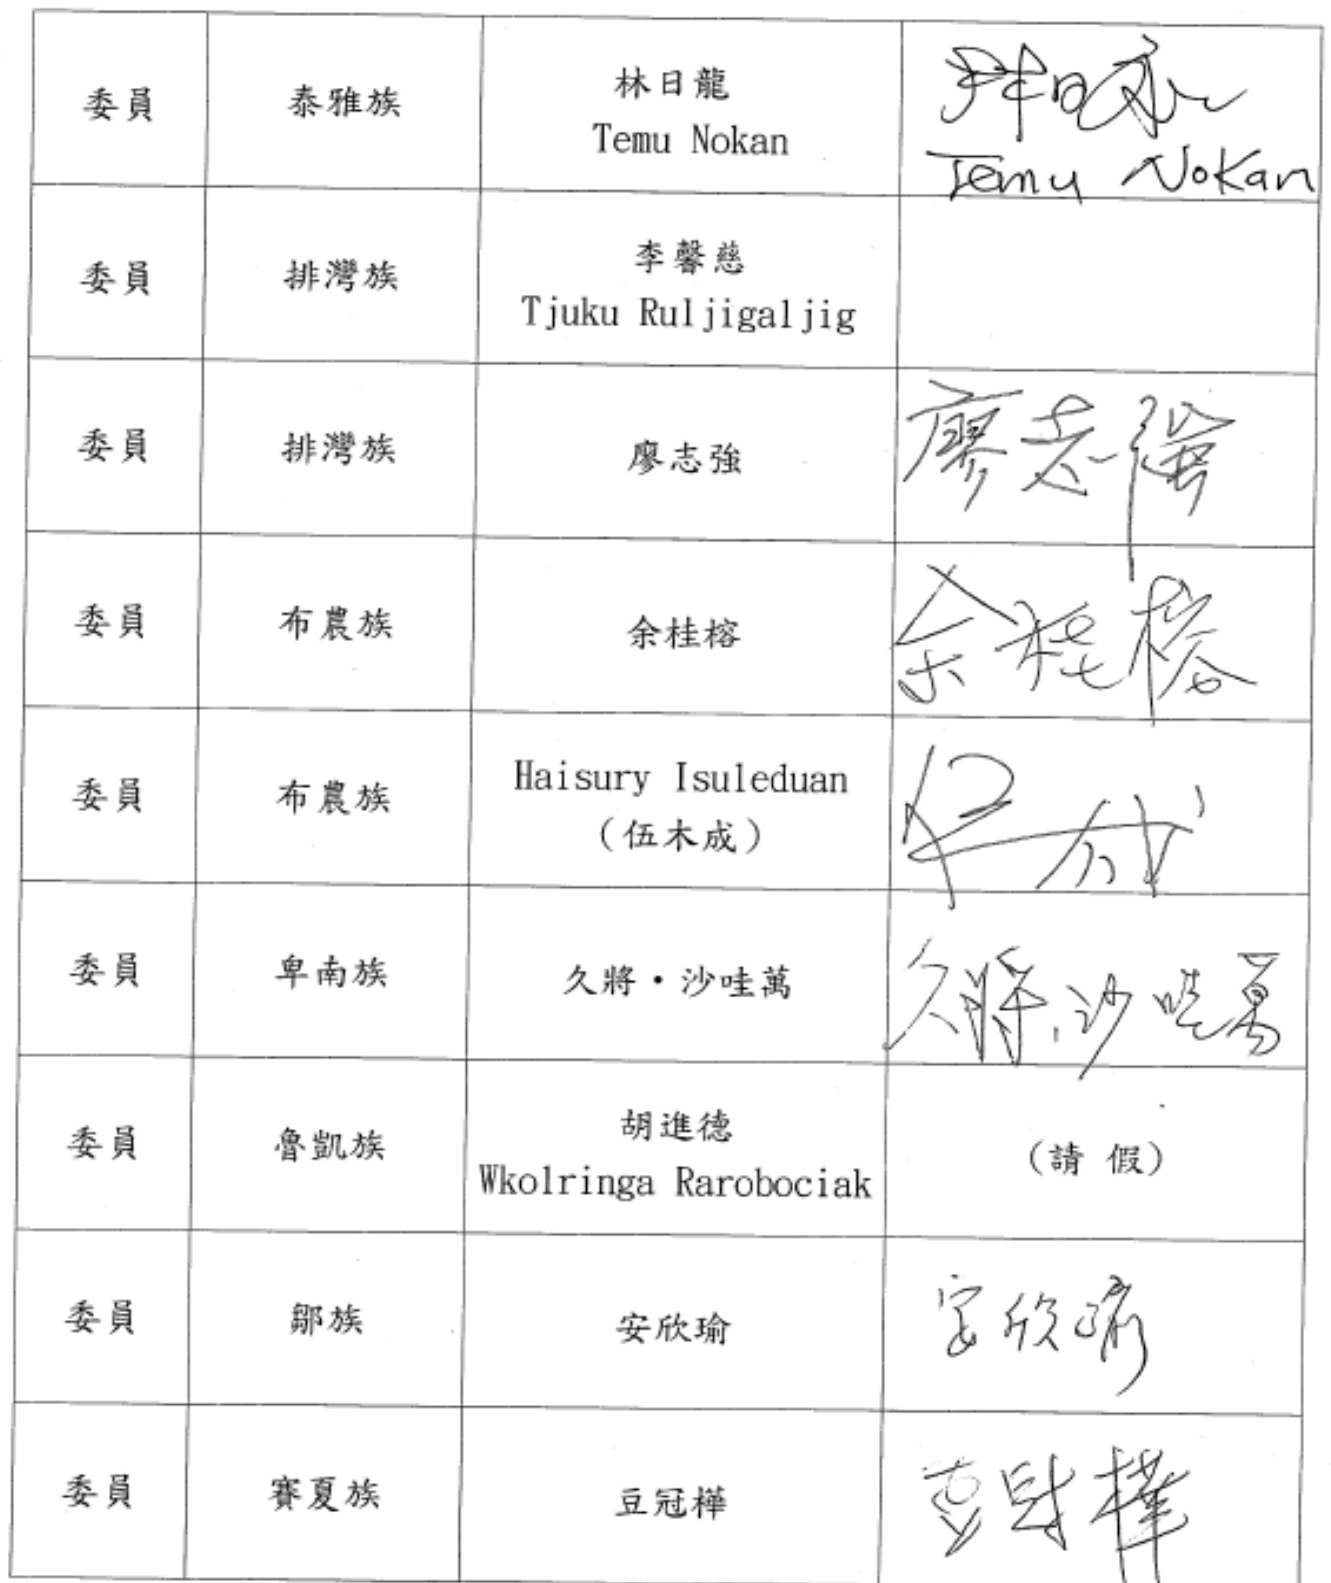 委員
泰雅族
林日龍
Temu Nokan
林日龍
Temu Nokan
委員
排灣族
李馨慈
Tjuku Ruljigaljig
委員
排灣族
廖志強
廖志強
委員
布農族
余桂榕
余桂榕
委員
布農族
Haisury Isuleduan
(伍木成)
委員
卑南族
久將·沙哇萬
久將·沙哇萬
委員
魯凱族
胡進德
Wkolringa Rarobociak
(請 假)
委員
鄒族
安欣瑜
安欣瑜
委員
賽夏族
豆冠樺
豆冠樺